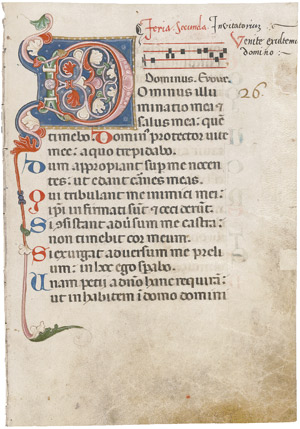 Feria Secunda Invitatorium
Venite exultemus
domino
Dominus. Evovae.
Ominus illu
minatio mea &
salus mea: quē
timebo Dominus protector vite
mee: a quo trepidabo.
Dum appropiant sup me nocen
tes: ut edant carnes meas.
Qui tribulant me inimici mei:
ipsi infirmati sunt & ceciderunt.
Si consistant adversum me castra:
non timebit cor meum.
Si exurgat adversum me preli
um: in hoc ego sperabo.
Unam petii a dño hanc requirā:
ut inhabitem in domo domini
26